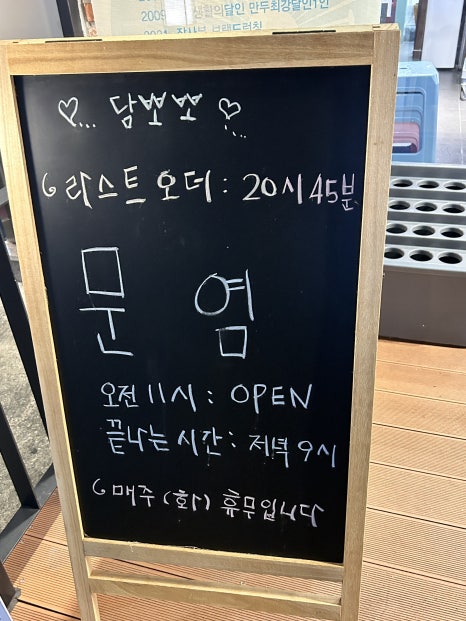 생활의달인 만두최강달인1인
♡... 담뽀뽀 ♡...
라스트 오더 : 20시 45분
문 염
오전 11시 : OPEN
끝나는 시간 : 저녁 9시
매주 (화) 휴무입니다